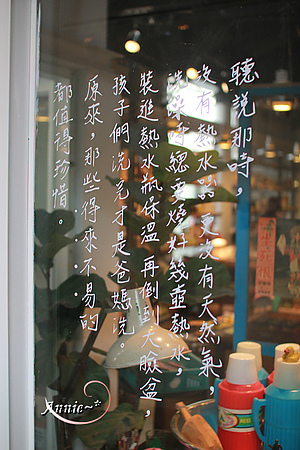 聽說那時，
沒有熱水器，更沒有天然氣，
洗澡時總要燒好幾壺熱水，
裝進熱水瓶保溫 再倒到大臉盆，
孩子們洗完才是爸媽洗。
原來，那些得來不易的
都值得珍惜。
Annie~*